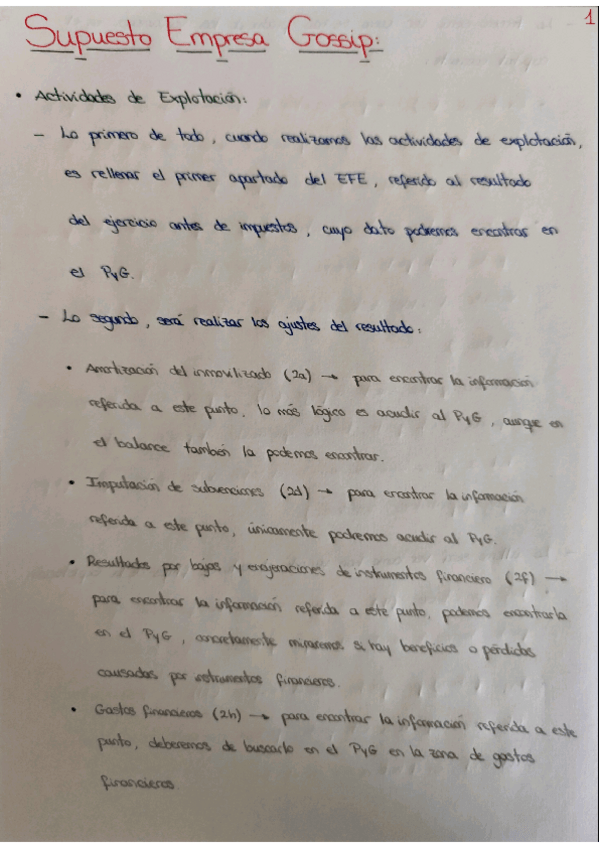 1
Supuesto Empresa Gossip:
• Actividades de Explotación:
– Lo primero de todo, cuando realizamos las actividades de explotación,
es rellenar el primer apartado del EFE, referido al resultado
del ejercicio antes de impuestos, cuyo dato podremos encontrar en
el PyG.
– Lo segundo, será realizar los ajustes del resultado:
• Amortización del inmovilizado (2a) → para encontrar la información
referida a este punto, lo más lógico es acudir al PyG, aunque en
el balance también la podemos encontrar.
• Imputación de subvenciones (2d) → para encontrar la información
referida a este punto, únicamente podremos acudir al PyG.
• Resultados por bajas y enajeraciones de instrumentos financiero (2f) →
para encontrar la información referida a este punto, podemos encontrarla
en el PyG, concretamente miraremos si hay beneficios o pérdidas
causadas por instrumentos financieros.
• Gastos financieros (2h) → para encontrar la información referida a este
punto, deberemos de buscarlo en el PyG en la zona de gastos
financieros